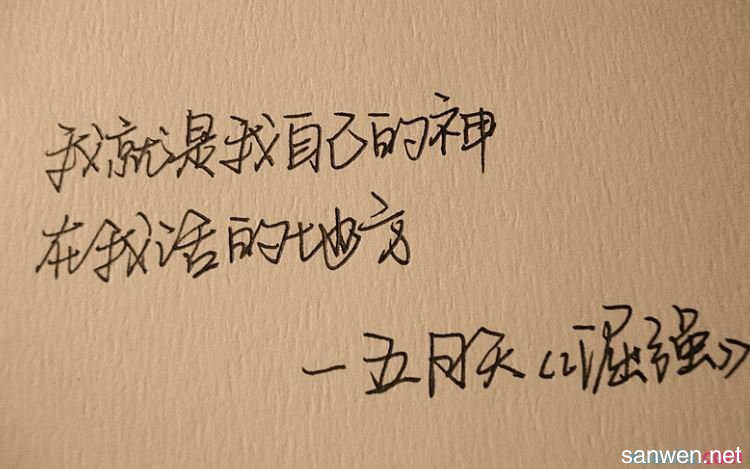 我就是我自己的神
在我活的地方
—五月天《倔强》
sanwen.net